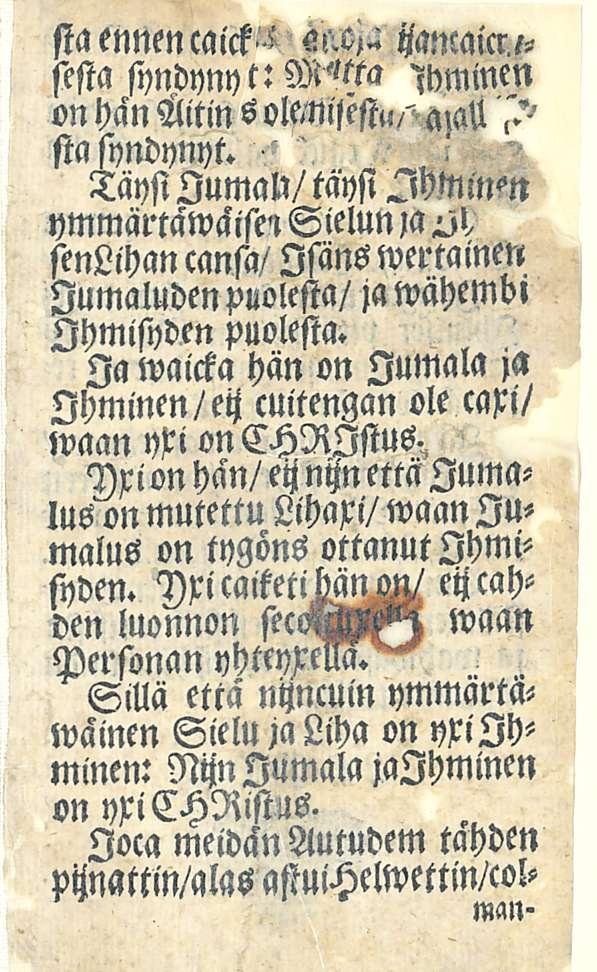 sta ennen caick ijancaicki⸗
sesta syndynyt: Mutta Ihminen
on hän Äitins olemisesta/ ajall
sta syndynyt.
Täysi Jumala/ täysi Ihminen
ymmärtäwäisen Sielun ja Ih
sen Lihan cansa/ Isäns wertainen
Jumaluden puolesta/ ja wähembi
Ihmisyden puolesta.
Ja waicka hän on Jumala ja
Ihminen/ eij cuitengan ole caxi/
waan yxi on CHRIstus.
Yxi on hän/ eij nijn että Juma⸗
lus on mutettu Lihaxi/ waan Ju⸗
malus on tygöns ottanut Ihmi⸗
syden. Yxi caiketi hän on/ eij cah⸗
den luonnon waan
Personan yhteyxellä.
Sillä että nijncuin ymmärtä⸗
wäinen Sielu ja Liha on yxi Ih⸗
minen: Nijn Jumala ja Ihminen
on yxi CHRistus.
Joca meidän Autudem tähden
pijnattin/ alas astui Helwettin/ col⸗
man-